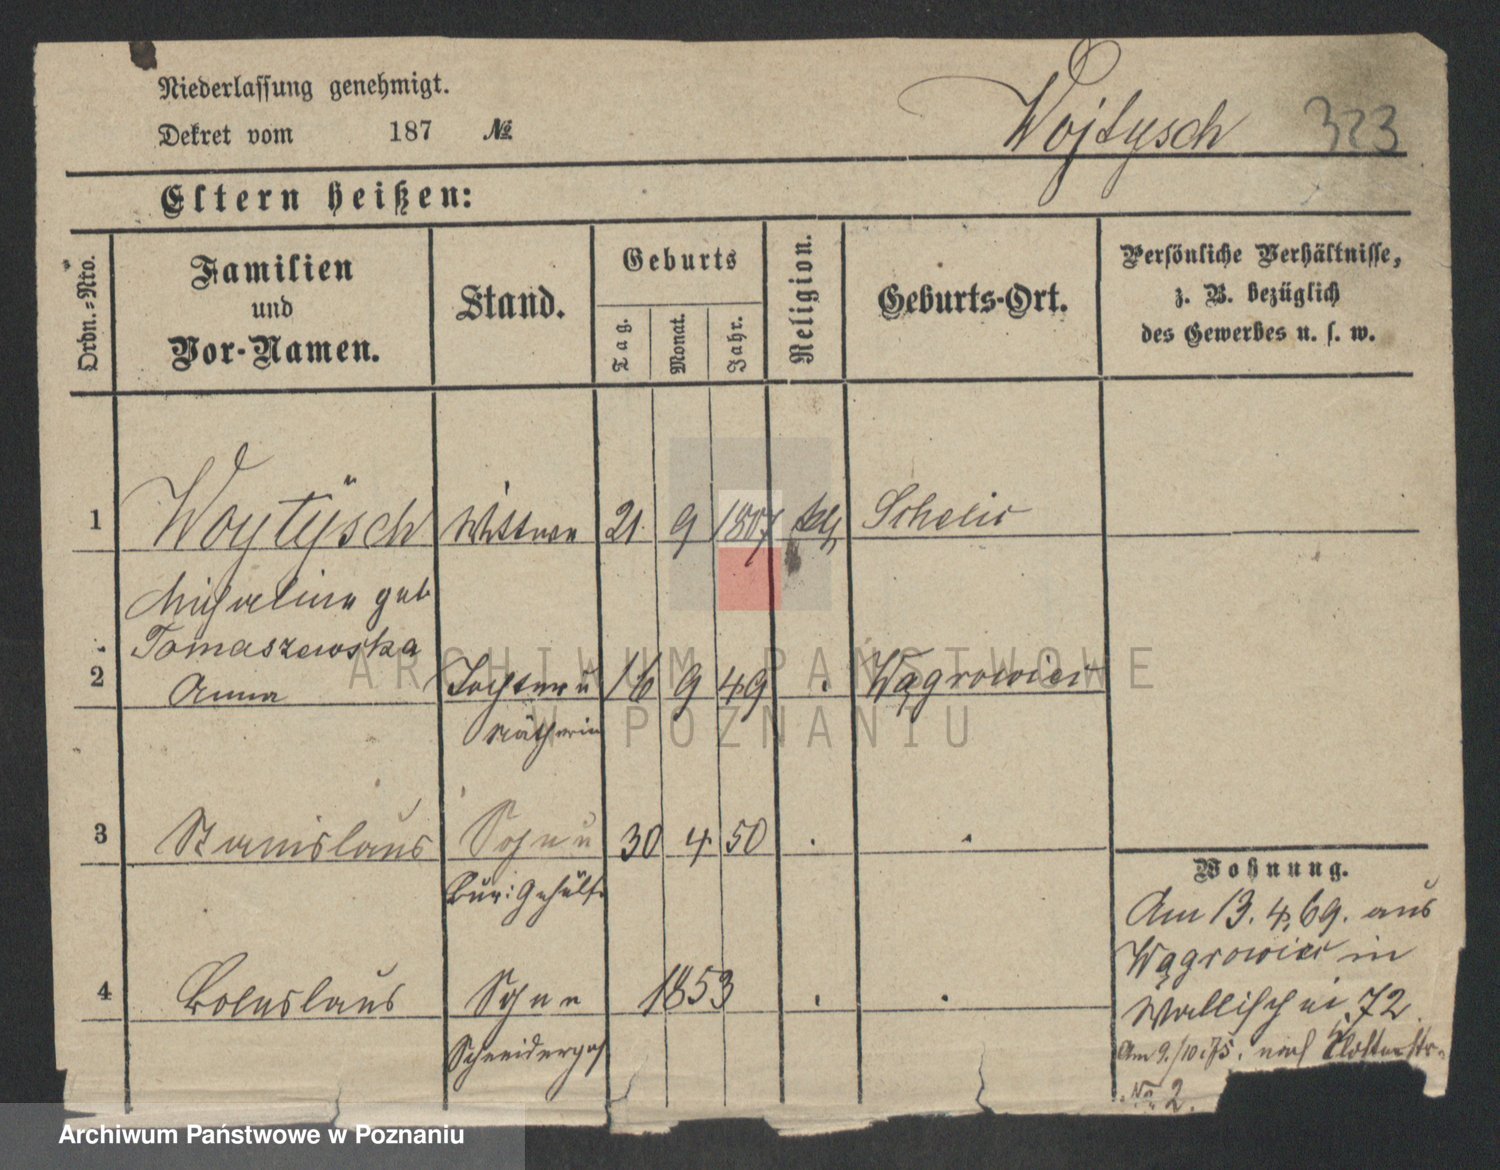 Niederlassung genehmigt.
Dekret vom 187 №
Wojtysch 323
Eltern heißen:
Ordn.-Nro.
Familien
und
Vor-Namen.
Stand.
Geburts
Tag.
Monat.
Jahr.
Religion.
Geburts-Ort.
Persönliche Verhältnisse,
z. B. bezüglich
des Gewerbes u. s. w.
1 Woytysch Wittwe 21. 9 1807 kth
Michaline geb
Tomaszewska
2 Anna Tochter u 16 9 49 . Wągrowiec
Nätherin
3 Stanislaus Sohn u 30 4 50 . .
Bür: Gehülfe
4 Boleslaus Sohn 1853 . .
Schneiderges
Wohnung.
Am 13. 4. 69. aus
Wągrowiec in
Wallischei 72.
Am 9./10.75. nach Klosterstr.
No 2.
ARCHIWUM PAŃSTWOWE
W POZNANIU
Archiwum Państwowe w Poznaniu